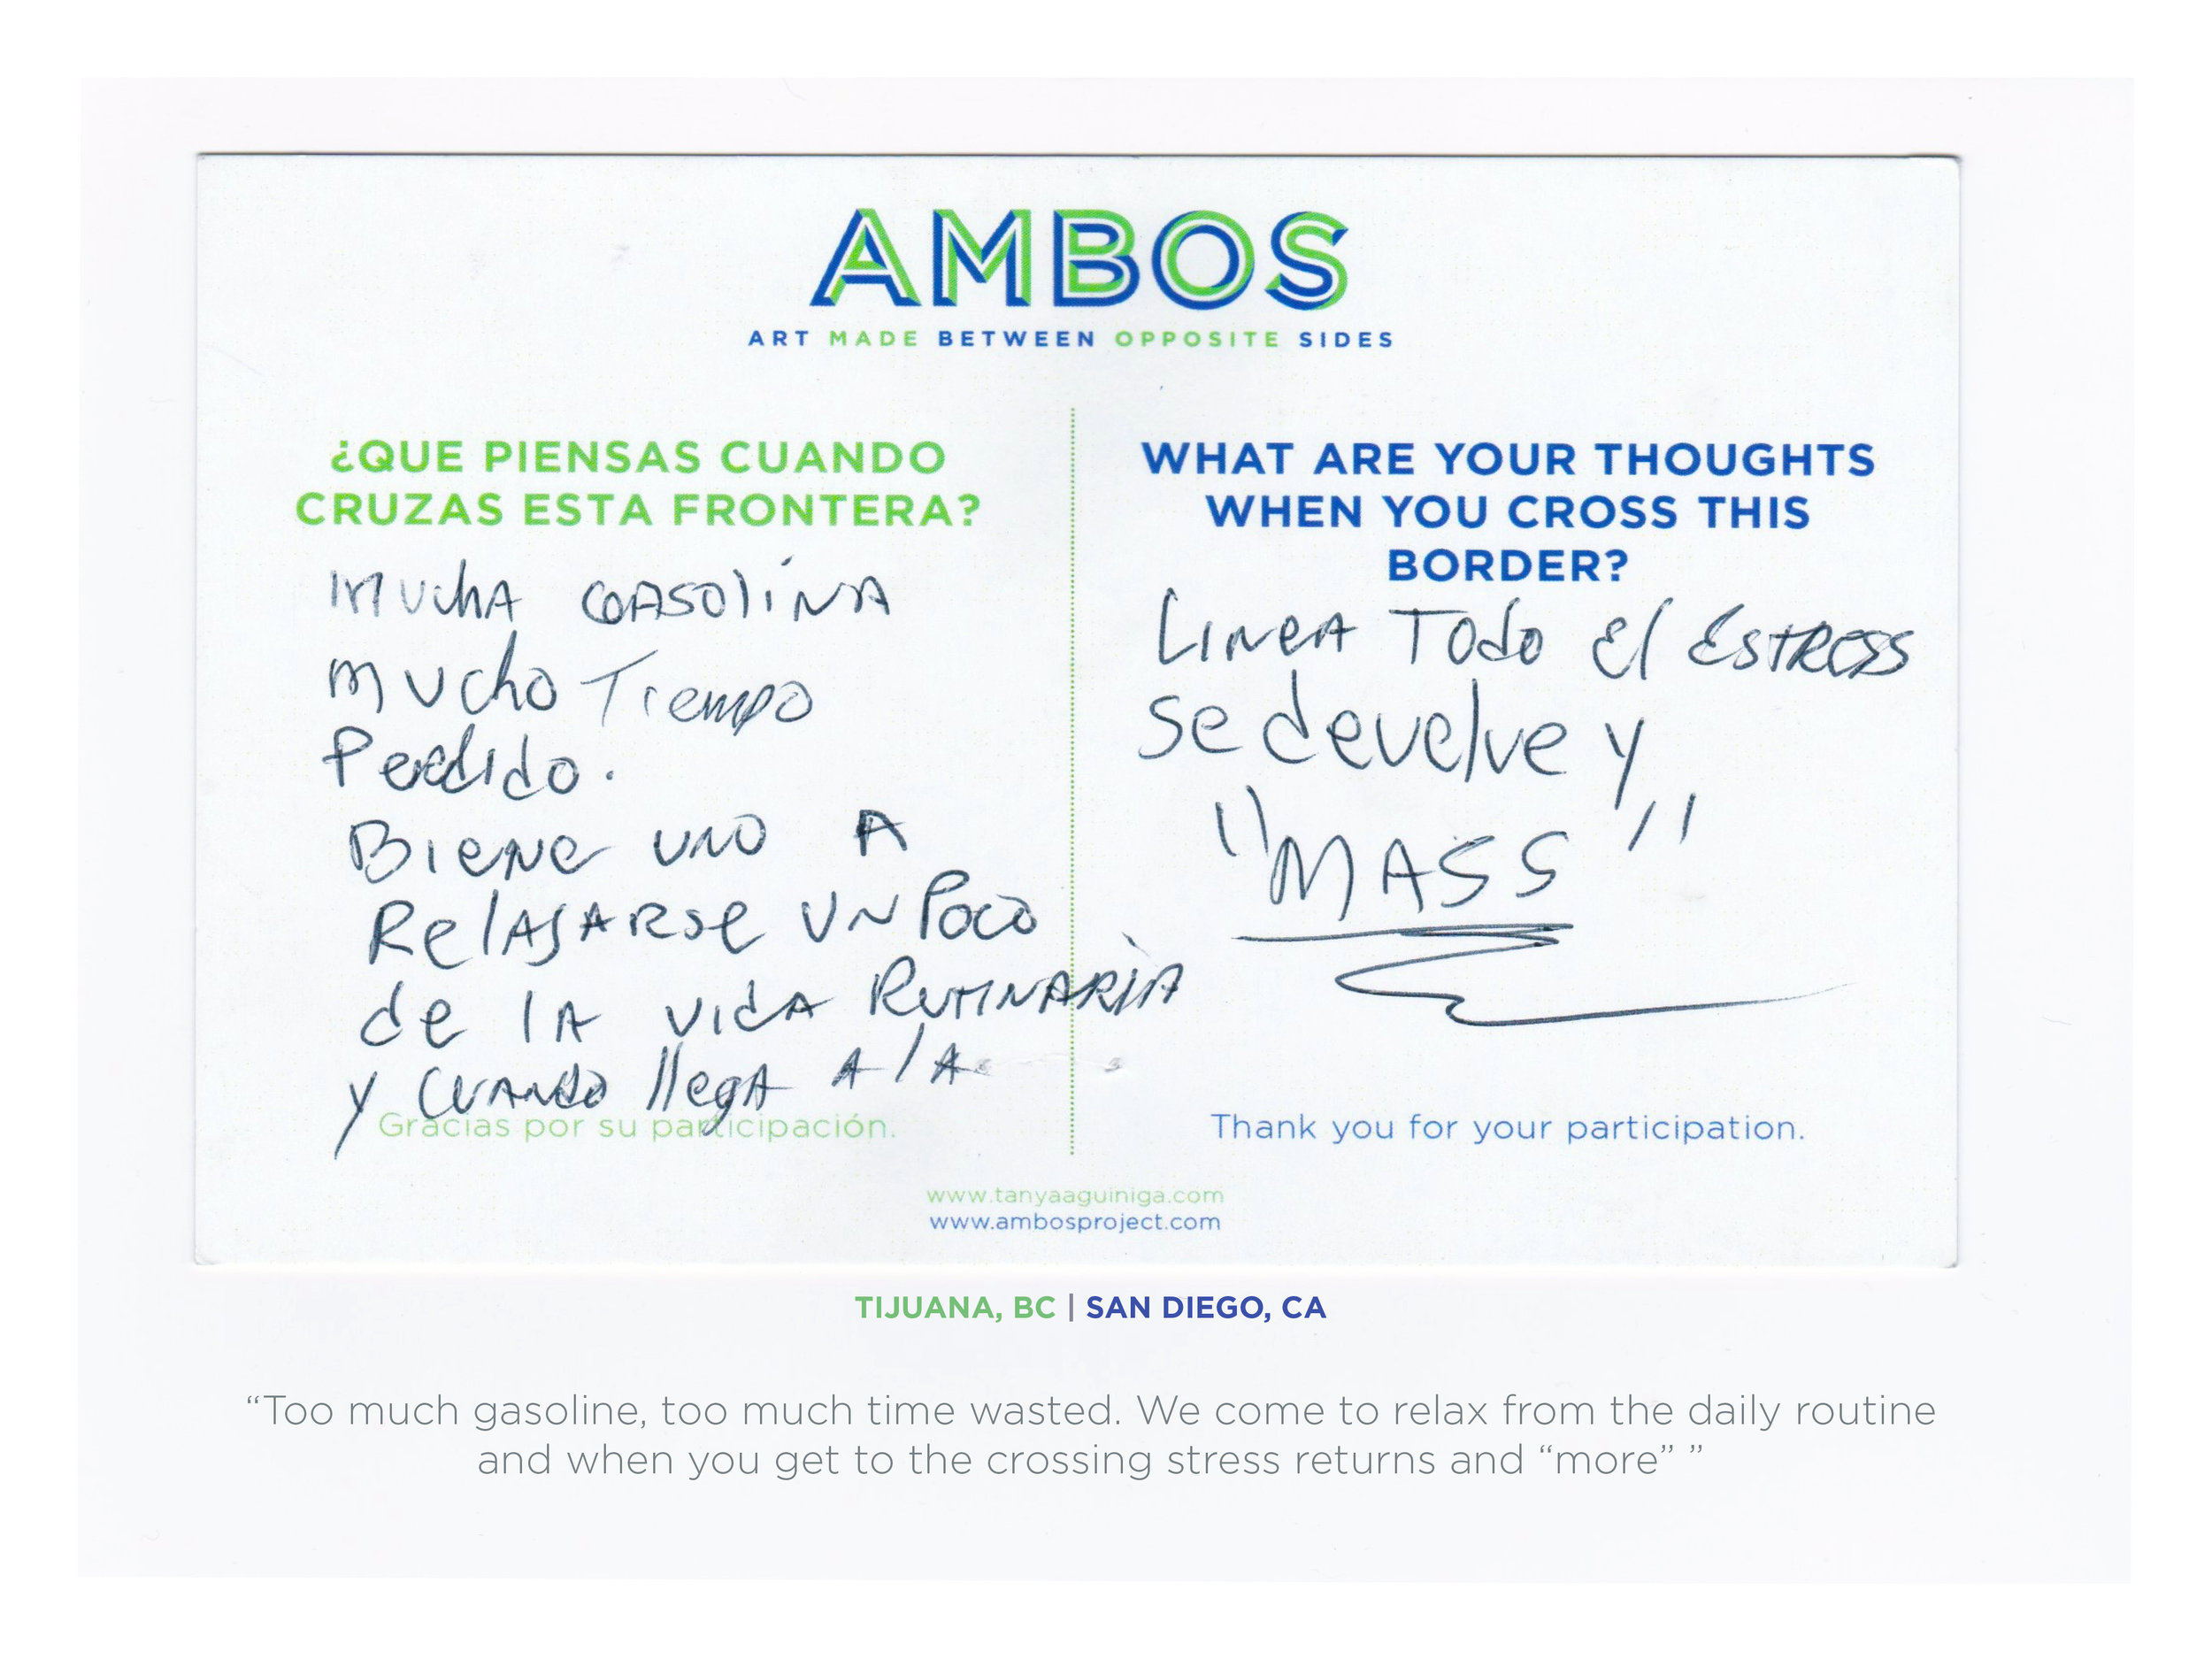 AMBOS
ART MADE BETWEEN OPPOSITE SIDES
¿QUE PIENSAS CUANDO
CRUZAS ESTA FRONTERA?
mucha gasolina
mucho Tiempo
Perdido.
Biene uno A
Relajarse un Poco
de la vida Rutinaria
y cuando llega a la
Gracias por su participación.
WHAT ARE YOUR THOUGHTS
WHEN YOU CROSS THIS
BORDER?
Linea Todo el Estress
se devuelve y
"MASS"
Thank you for your participation.
www.tanyaaguiniga.com
www.ambosproject.com
TIJUANA, BC | SAN DIEGO, CA
“Too much gasoline, too much time wasted. We come to relax from the daily routine
and when you get to the crossing stress returns and “more” ”